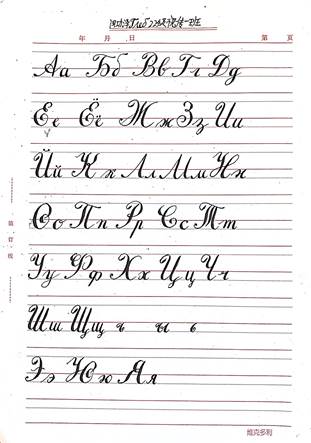 年 月 日 第 页
Аа Бб Вв Гг Дд
Ее Ёё Жж Зз Ии
Йй Кк Лл Мм Нн
Оо Пп Рр Сс Тт
Уу Фф Хх Цц Чч
Шш Щщ ъ ы ь
Ээ Юю Яя
装订线
维克多利